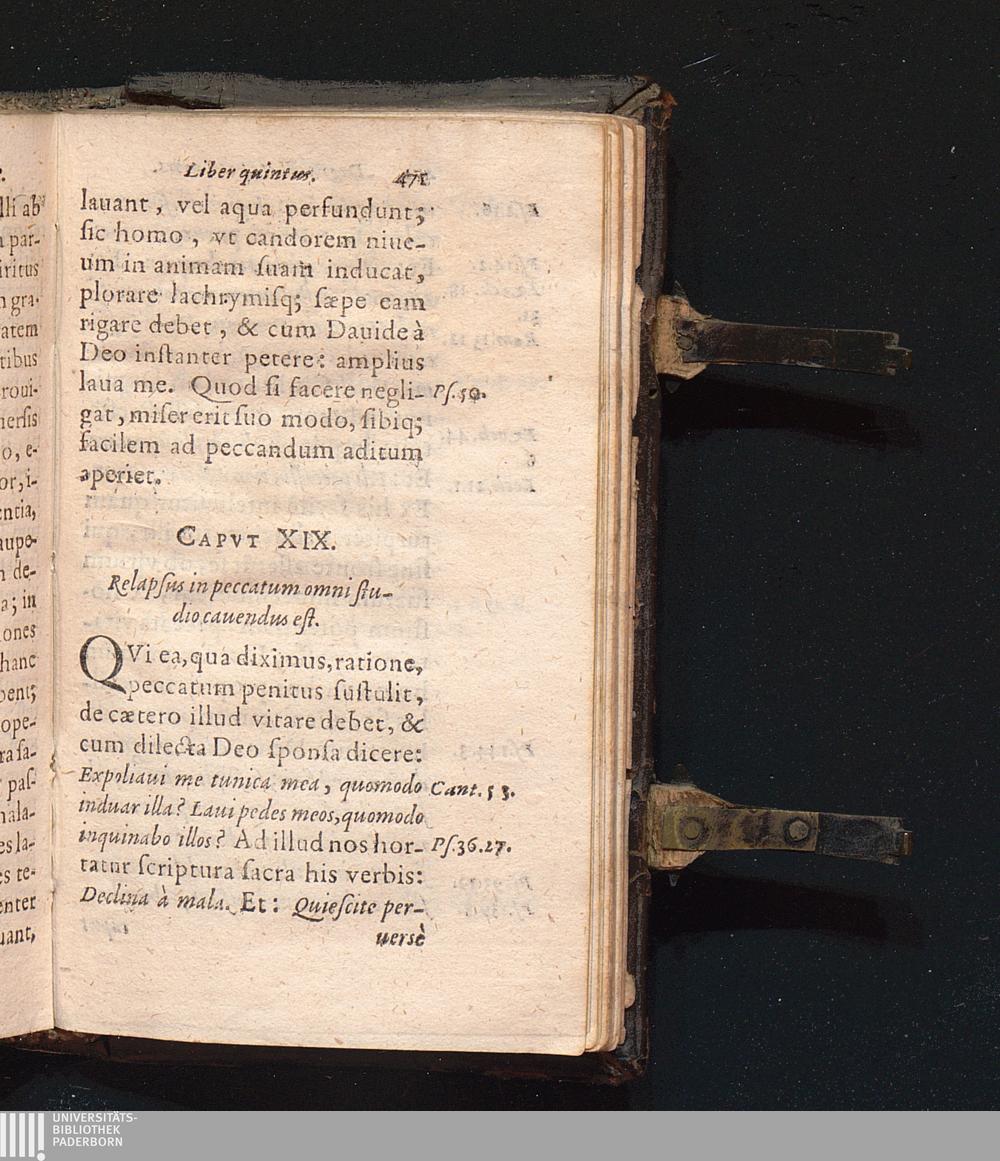 Liber quintus. 471
lauant, vel aqua perfundunt;
ſic homo, vt candorem niue-
um in animam ſuam inducat,
plorare lachrymiſq; ſæpe eam
rigare debet, & cum Dauide à
Deo inſtanter petere: amplius
laua me. Quod ſi facere negli- Pſ.50.
gat, miſer erit ſuo modo, ſibiq;
facilem ad peccandum aditum
aperiet.
CAPVT XIX.
Relapſus in peccatum omni ſtu-
dio cauendus eſt.
QVi ea, qua diximus, ratione,
peccatum penitus ſuſtulit,
de cætero illud vitare debet, &
cum dilecta Deo ſponſa dicere:
Expoliaui me tunica mea, quomodo Cant.5 3.
induar illa? Laui pedes meos, quomodo
inquinabo illos? Ad illud nos hor- Pſ.36.27.
tatur ſcriptura ſacra his verbis:
Declina à malo. Et: Quieſcite per-
uersè
lli ab
par-
iritus
gra-
atem
tibus
roui-
nerſis
o, e-
or, i-
entia,
aupe-
de-
a; in
ones
hanc
bent;
ope-
ra ſa-
paſ-
mala-
es la-
es te-
enter
uant,
UNIVERSITÄTS-
BIBLIOTHEK
PADERBORN